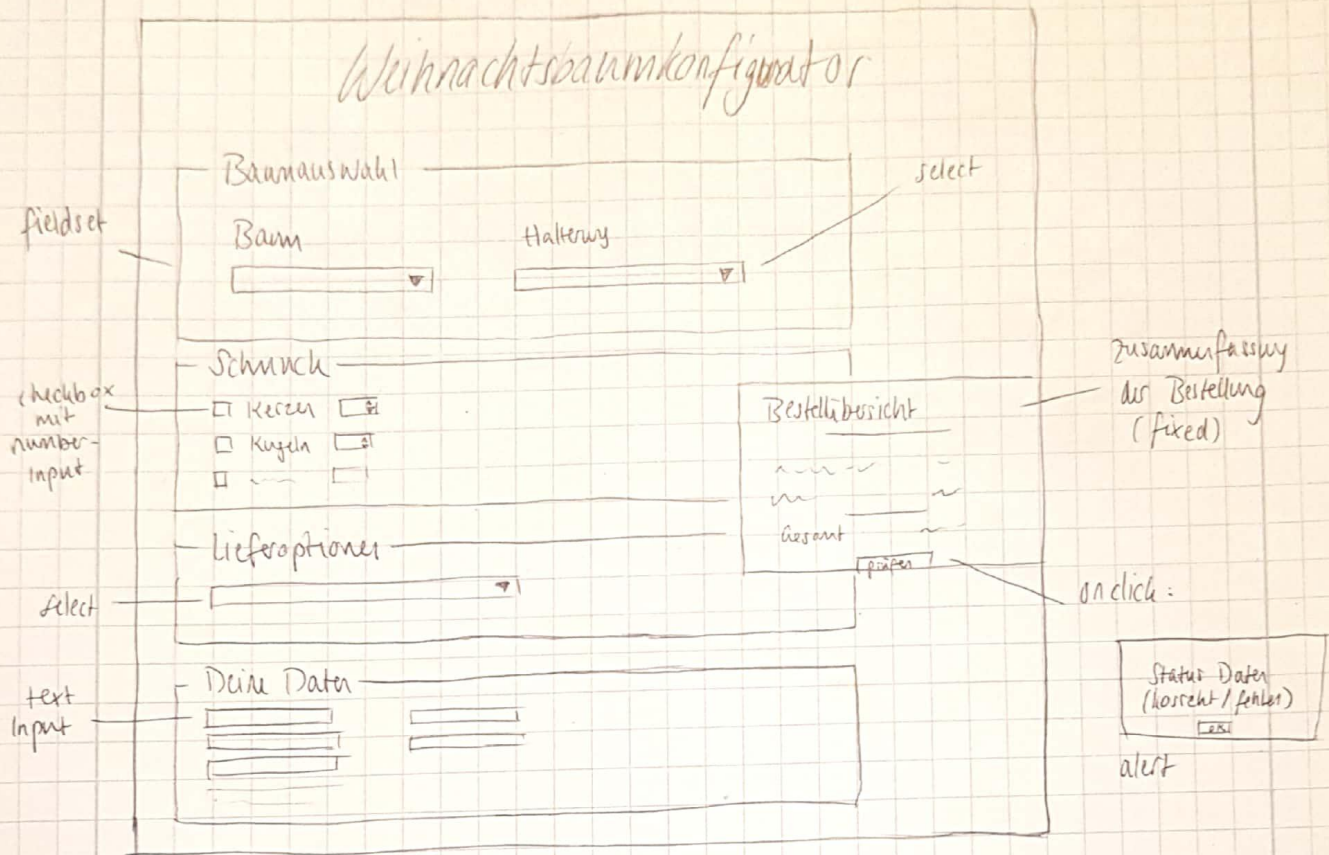 Weihnachtsbaumkonfigurator
Baumauswahl
select
fieldset
Baum
Halterung
Schmuck
checkbox
mit
number-
input
Kerzen
Kugeln
Bestellübersicht
Gesamt
prüfen
Zusammenfassung
der Bestellung
(fixed)
Lieferoptionen
select
onclick:
Deine Daten
text
Input
Status Daten
(korrekt / fehler)
ok
alert